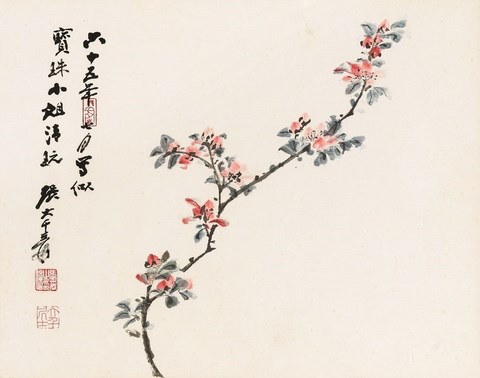 六十五年七月写似
寶珠小姐清玩 張大千爰